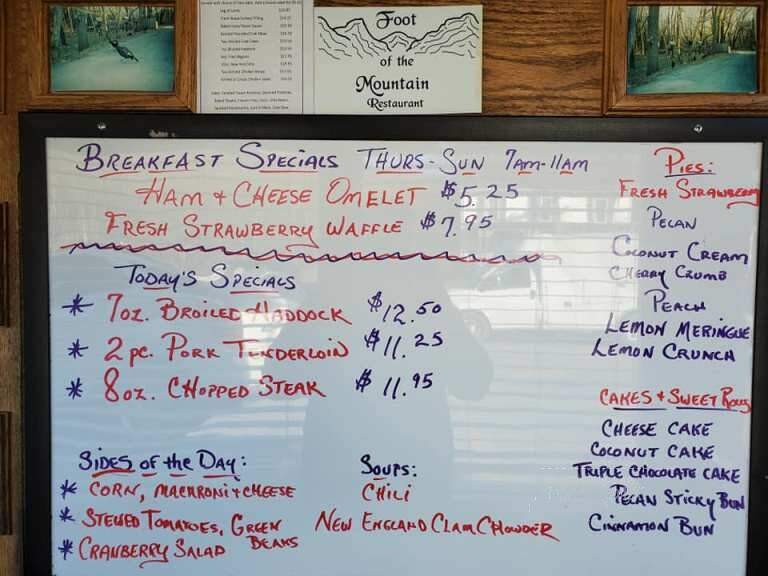 Foot
of the
Mountain
Restaurant
BREAKFAST SPECIALS THURS-SUN 7AM-11AM
HAM & CHEESE OMELET $5.25
FRESH STRAWBERRY WAFFLE $7.95
TODAY'S SPECIALS
* 7oz. BROILED HADDOCK $12.50
* 2 pc. PORK TENDERLOIN $11.25
* 8oz. CHOPPED STEAK $11.95
SIDES OF the DAY:
* CORN, MACARONI & CHEESE
* STEWED TOMATOES, GREEN
BEANS
* CRANBERRY SALAD
SOUPS:
CHILI
NEW ENGLAND CLAM CHOWDER
PIES:
FRESH STRAWBERRY
PECAN
COCONUT CREAM
CHERRY CRUMB
PEACH
LEMON MERINGUE
LEMON CRUNCH
CAKES & SWEET ROLLS
CHEESE CAKE
COCONUT CAKE
TRIPLE CHOCOLATE CAKE
PECAN STICKY BUN
CINNAMON BUN